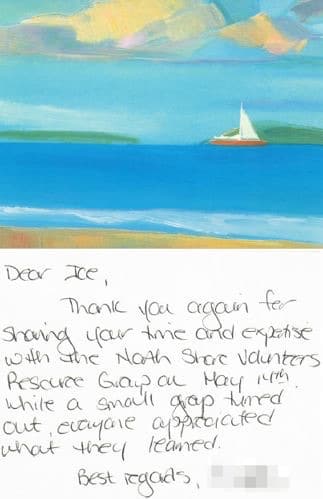 Dear Ice,
Thank you again for
sharing your time and expertise
with the North Shore Volunteers
Resource Group on May 14th.
While a small group turned
out, everyone appreciated
what they learned.
Best regards,